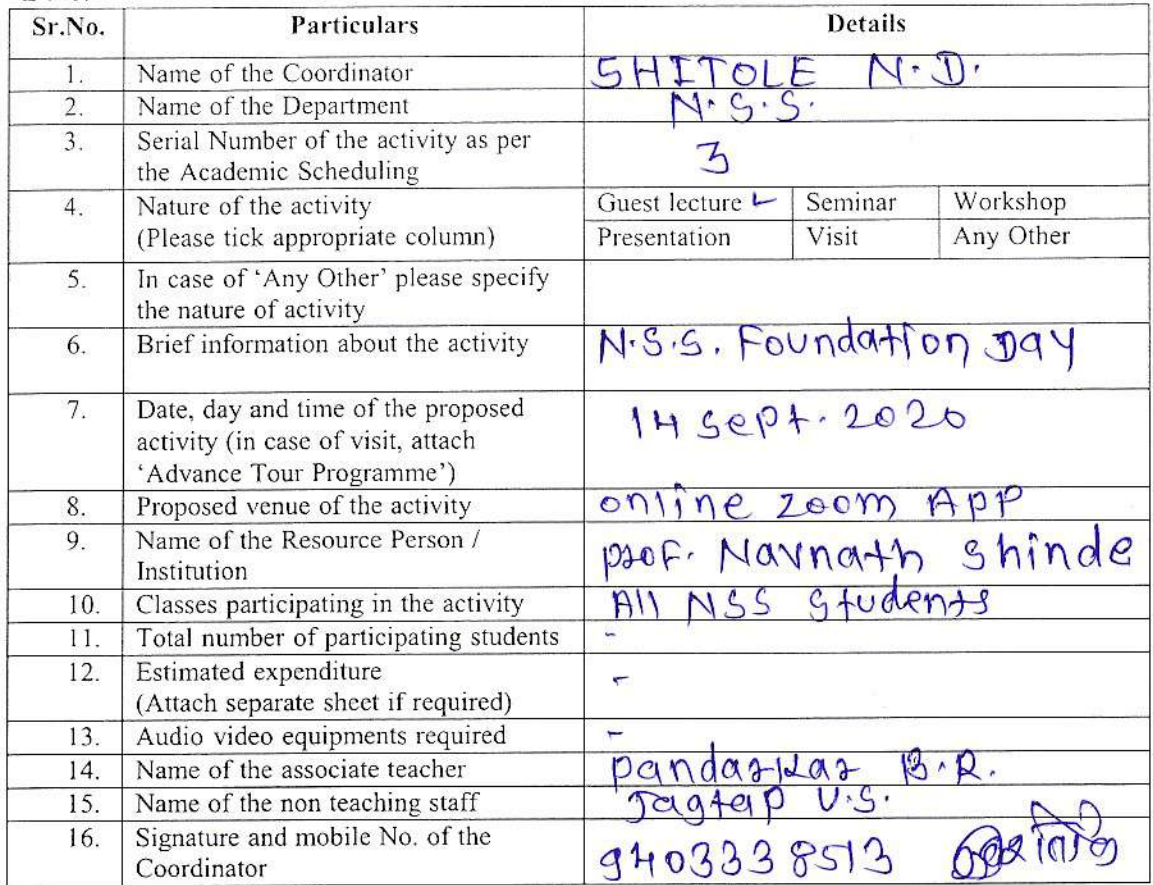 Sr.No. Particulars Details
1. Name of the Coordinator SHITOLE N.D.
2. Name of the Department N.S.S.
3. Serial Number of the activity as per
the Academic Scheduling 3
4. Nature of the activity Guest lecture ✓ Seminar Workshop
(Please tick appropriate column) Presentation Visit Any Other
5. In case of 'Any Other' please specify
the nature of activity
6. Brief information about the activity N.S.S. Foundation Day
7. Date, day and time of the proposed
activity (in case of visit, attach 14 Sept. 2020
'Advance Tour Programme')
8. Proposed venue of the activity online zoom App
9. Name of the Resource Person /
Institution prof. Navnath Shinde
10. Classes participating in the activity All NSS Students
11. Total number of participating students -
12. Estimated expenditure -
(Attach separate sheet if required)
13. Audio video equipments required -
14. Name of the associate teacher pandarkar B.R.
15. Name of the non teaching staff Jagtap U.S.
16. Signature and mobile No. of the
Coordinator 9403338513